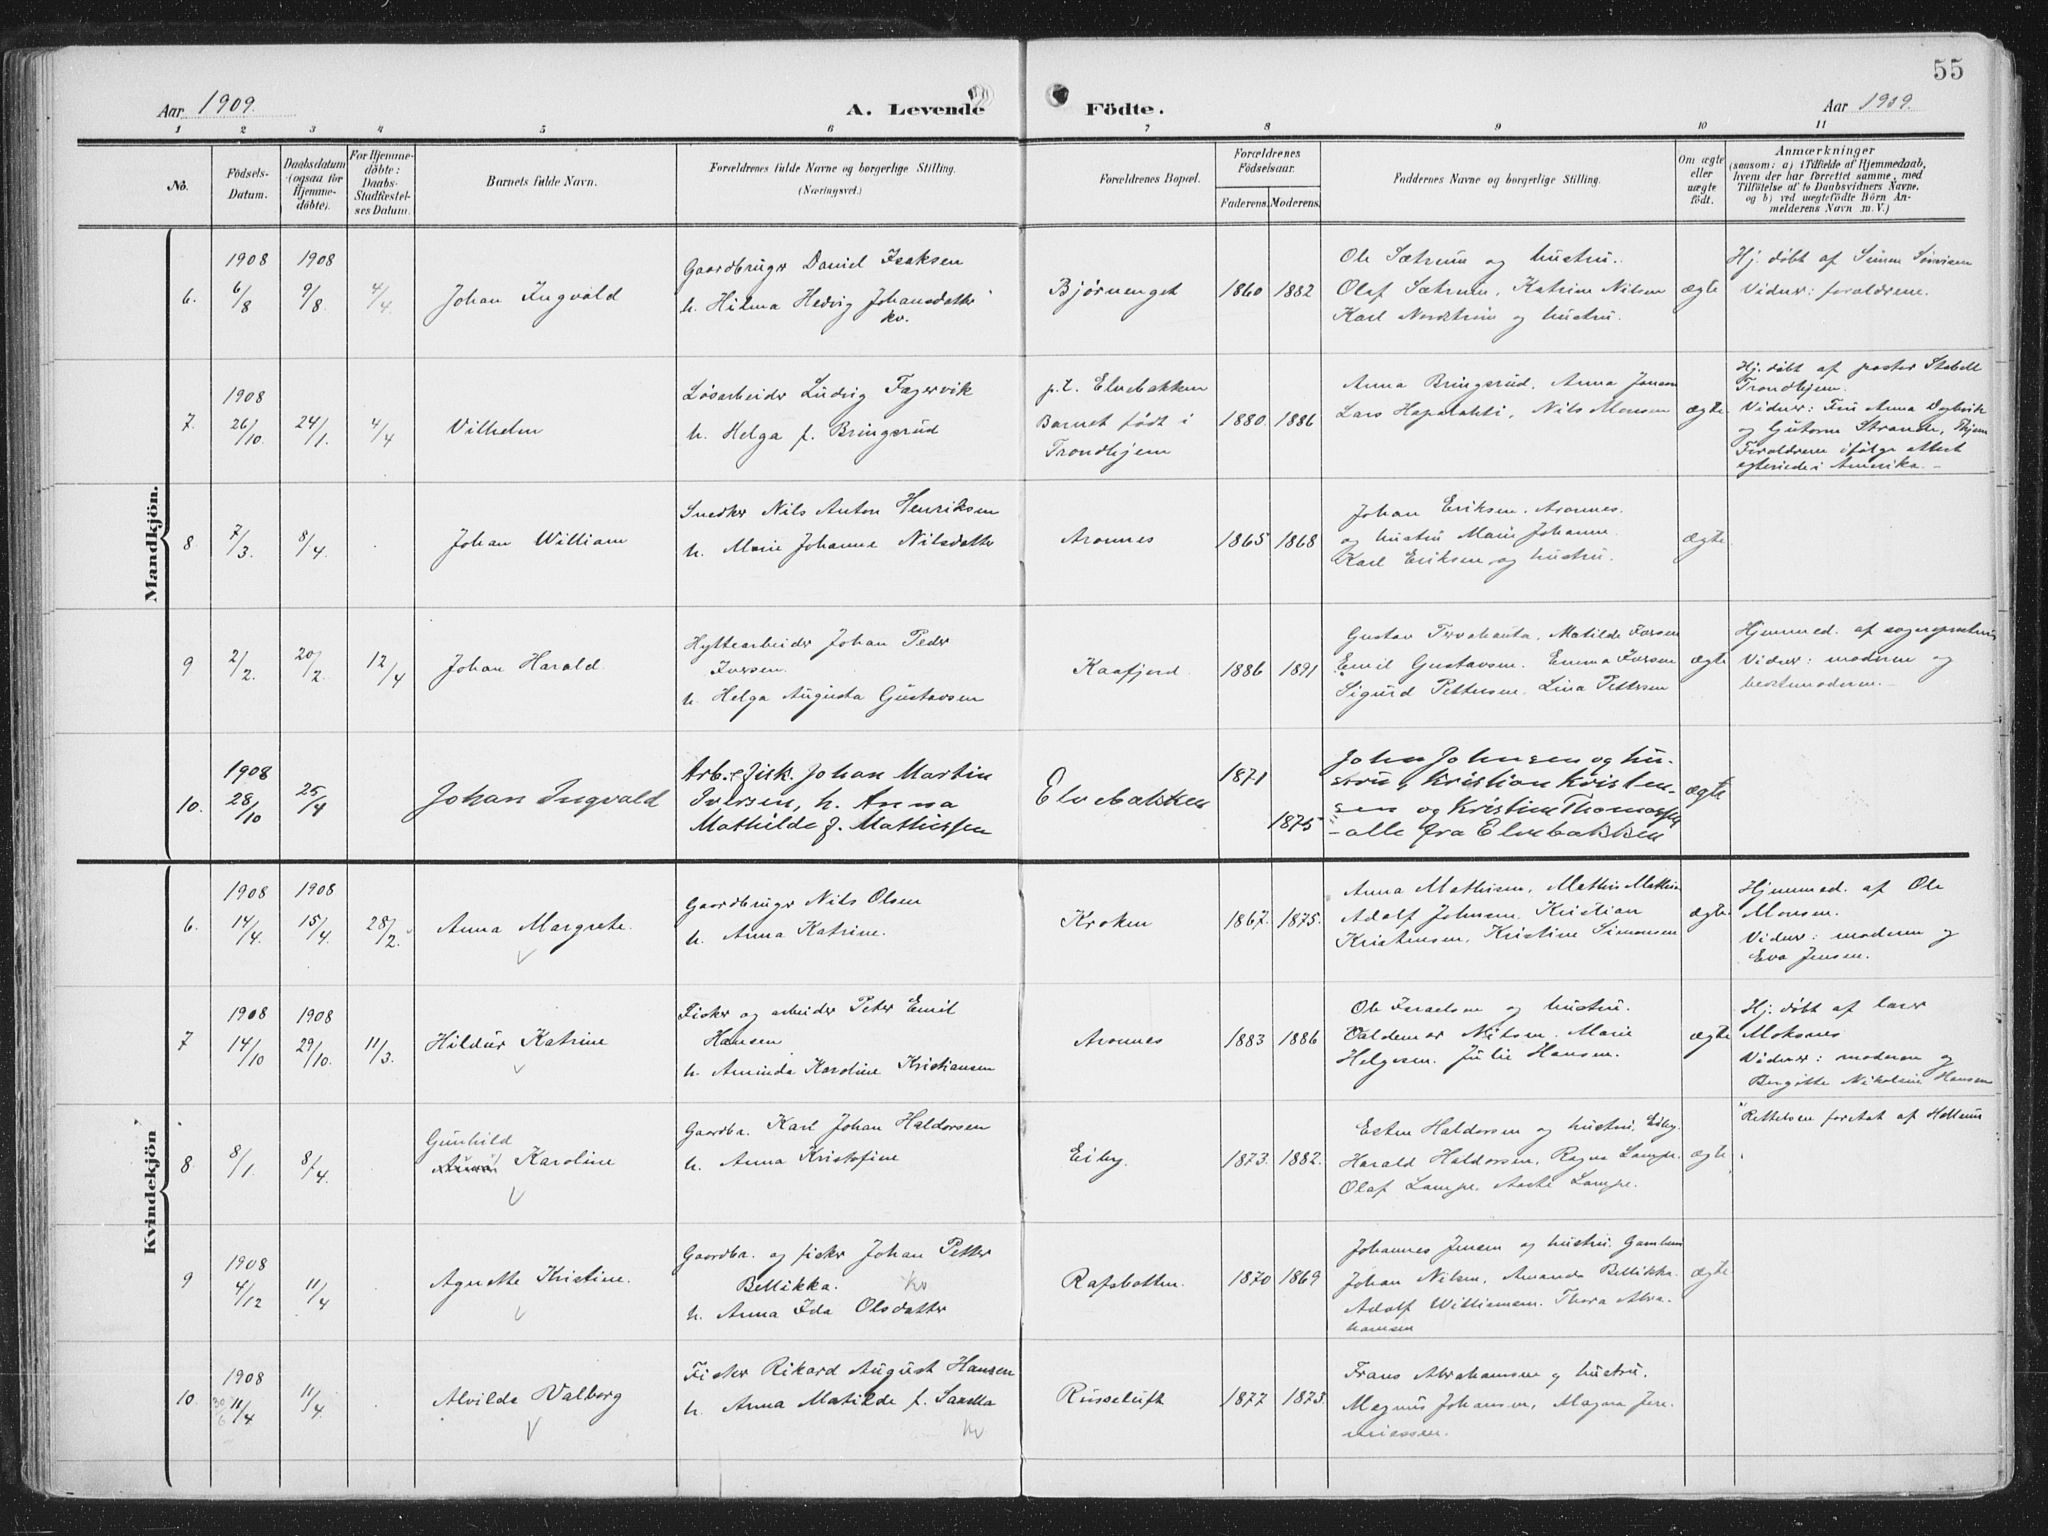 55
Aar 1909.
A. Levende
Födte.
Aar 1909.
1 2 3 4 5 6 7 8 9 10 11
No.
Födsels-
Datum.
Daabsdatum
(ogsaa för
Hjemme-
döbte).
For Hjemme-
döbte:
Daabs-
Stadfæstel-
ses Datum.
Barnets fulde Navn.
Forældrenes fulde Navne og borgerlige Stilling.
(Næringsvei.)
Forældrenes Bopæl.
Forældrenes
Födselsaar.
Faderens. Moderens.
Faddernes Navne og borgerlige Stilling.
Om ægte
eller
uægte
födt.
Anmærkninger
(saasom: a) i Tilfælde af Hjemmedaab,
hvem der har forrettet samme, med
Tilföielse af to Daabsvidners Navne.
og b) ved uægtefödte Börn An-
melderens Navn m. V.)
Mandkjön.
6.
1908
6/8
1908
9/8
4/4
Johan Ingvald
Gaardbruger Daniel Isaksen
h. Hilma Hedvig Johansdatter
kv.
Bjørnenget
1860 1882
Ole Sætrum og hustru.
Olaf Sætrum, Katrine Nilsen
Karl Nordstrøm og hustru.
ægte
Hj. døbt af
Vidner: forældrene.
7.
1908
26/10
24/1.
4/4
Vilhelm
Løsarbeider Ludvig Fagervik
h. Helga f. Bringsrud
p.t. Elvebakken
Barnet født i
Trondhjem
1880. 1886
Anna Bringsrud, Anna Jensen
Lars Hapalahti, Nils Monsen
ægte
Hj. døbt af pastor Stabell
Trondhjem.
Vidner: Fru Anna
og Strande, Thjem
Forældrene ifølge attest
egteviede i Amerika.
8.
7/3.
8/4.
Johan William
Snedker Nils Anton Henriksen
h. Marie Johanne Nilsdatter
Aronnes
1865 1868
Johan Eriksen, Aronnes.
og hustru Marie Johanne.
Karl Eriksen og hustru.
ægte.
9
2/2.
20/2.
12/4
Johan Harald.
Hyttearbeider Johan Peder
Iversen.
h. Helga Augusta Gustavsen
Kaafjord.
1886 1891
Gustav Tervahauta, Matilde Iversen
Emil Gustavsen. Emma Iversen
Sigurd Pettersen. Lina Pettersen
ægte
Hjemmed. af sognepresten
Vidner: moderen og
bestemoderen.
10.
1908
28/10
25/4
Johan Ingvald
Arb. & fisk. Johan Martin
Iversen, h. Anna
Mathilde f. Mathissen
Elvebakken
1871
1875
John Johnsen og hu-
stru, Kristian Kristen-
sen og Kristine Thomassen
- alle fra Elvebakken
ægte
Kvindekjön
6.
1908
14/4.
1908
15/4.
28/2.
Anna Margrete.
Gaardbruger Nils Olsen
h. Anna Katrine.
Kroken
1867. 1875.
Anna Mathisen, Mathis Mathisen
Adolf Johnsen, Kristian
Kristensen, Kristine Simonsen
ægte
Hjemmed. af Ole
Monsen.
Vidner: moderen og
Eva Jensen.
7
1908
14/10
1908
29/10.
11/3.
Hildur Katrine
Fisker og arbeider Peter Emil
Hansen
h. Aminda Karoline Kristiansen
Aronnes
1883 1886
Ole Israelsen og hustru.
Valdemar Nilsen. Marie
Helgesen. Julie Hansen.
ægte
Hj. døbt af lærer
Moksnes
Vidner: moderen og
Birgitte Nikoline Hansen
8
8/1.
8/4.
Gunhild
Karoline
Gaardbr. Karl Johan Haldorsen
h. Anna Kristofine
Eiby.
1873. 1882.
Esten Haldorsen og hustru, Eiby.
Harald Haldorsen, Ragna Lampe.
Olaf Lampe. Aaste Lampe.
ægte.
Rettelsen foretat af
9
1908
4/12
11/4
Agnette Kristine.
Gaardbr. og fisker Johan Petter
Bettikka. kv
h. Anna Ida Olsdatter
Rafsbotten.
1870 1869
Johannes Jensen og hustru,
Johan Nilsen, Amanda Bettikka.
Adolf Williamsen. Thora Abra-
hamsen
ægte
10.
1908
30/6
11/4
11/4.
Alvilde Valborg
Fisker Rikard August Hansen
h. Anna Matilde f. Samka
kv
Russeluft
1877 1873.
Frans Abrahamsen og hustru.
Magnus Johansen, Magna Jere-
miassen.